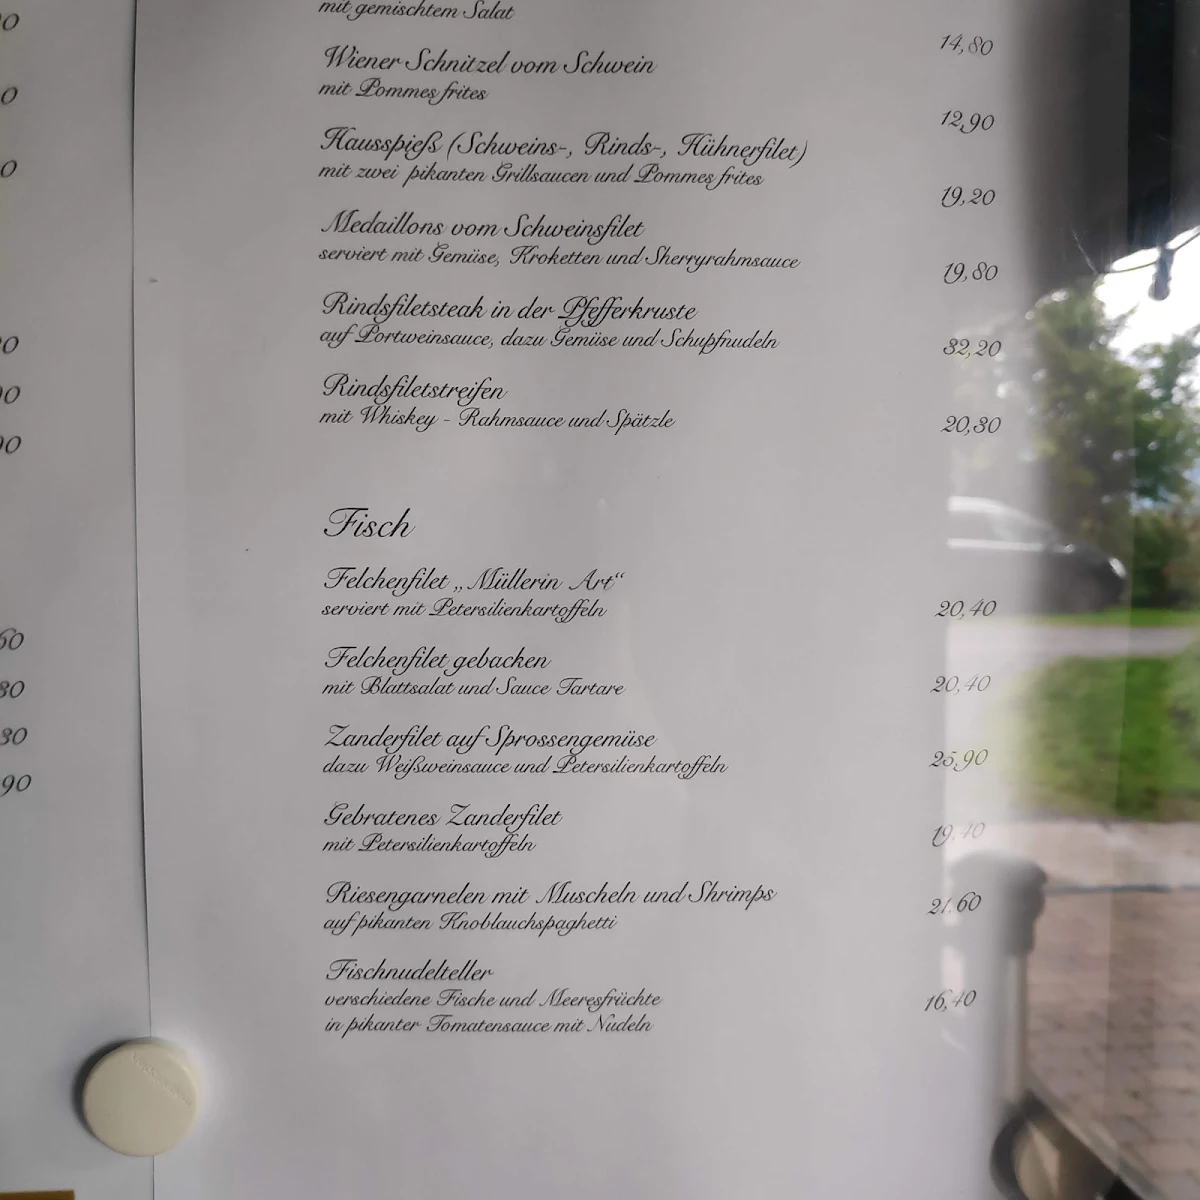 mit gemischtem Salat 14,80
Wiener Schnitzel vom Schwein
mit Pommes frites 12,90
Hausspieß (Schweins-, Rinds-, Hühnerfilet)
mit zwei pikanten Grillsaucen und Pommes frites 19,20
Medaillons vom Schweinsfilet
serviert mit Gemüse, Kroketten und Sherryrahmsauce 19,80
Rindsfiletsteak in der Pfefferkruste
auf Portweinsauce, dazu Gemüse und Schupfnudeln 32,20
Rindsfiletstreifen
mit Whiskey - Rahmsauce und Spätzle 20,30
Fisch
Felchenfilet „Müllerin Art“
serviert mit Petersilienkartoffeln 20,40
Felchenfilet gebacken
mit Blattsalat und Sauce Tartare 20,40
Zanderfilet auf Sprossengemüse
dazu Weißweinsauce und Petersilienkartoffeln 25,90
Gebratenes Zanderfilet
mit Petersilienkartoffeln 19,40
Riesengarnelen mit Muscheln und Shrimps
auf pikanten Knoblauchspaghetti 21,60
Fischnudelteller
verschiedene Fische und Meeresfrüchte 16,40
in pikanter Tomatensauce mit Nudeln